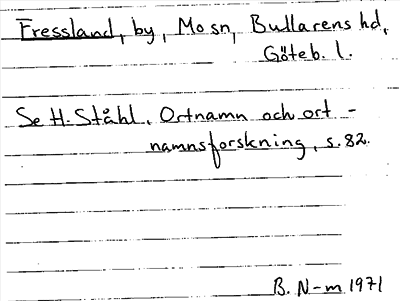 Fressland, by, Mo sn, Bullarens hd,
Göteb. l.
Se H. Ståhl, Ortnamn och ort-
namnsforskning, s. 82.
B. N-m 1971